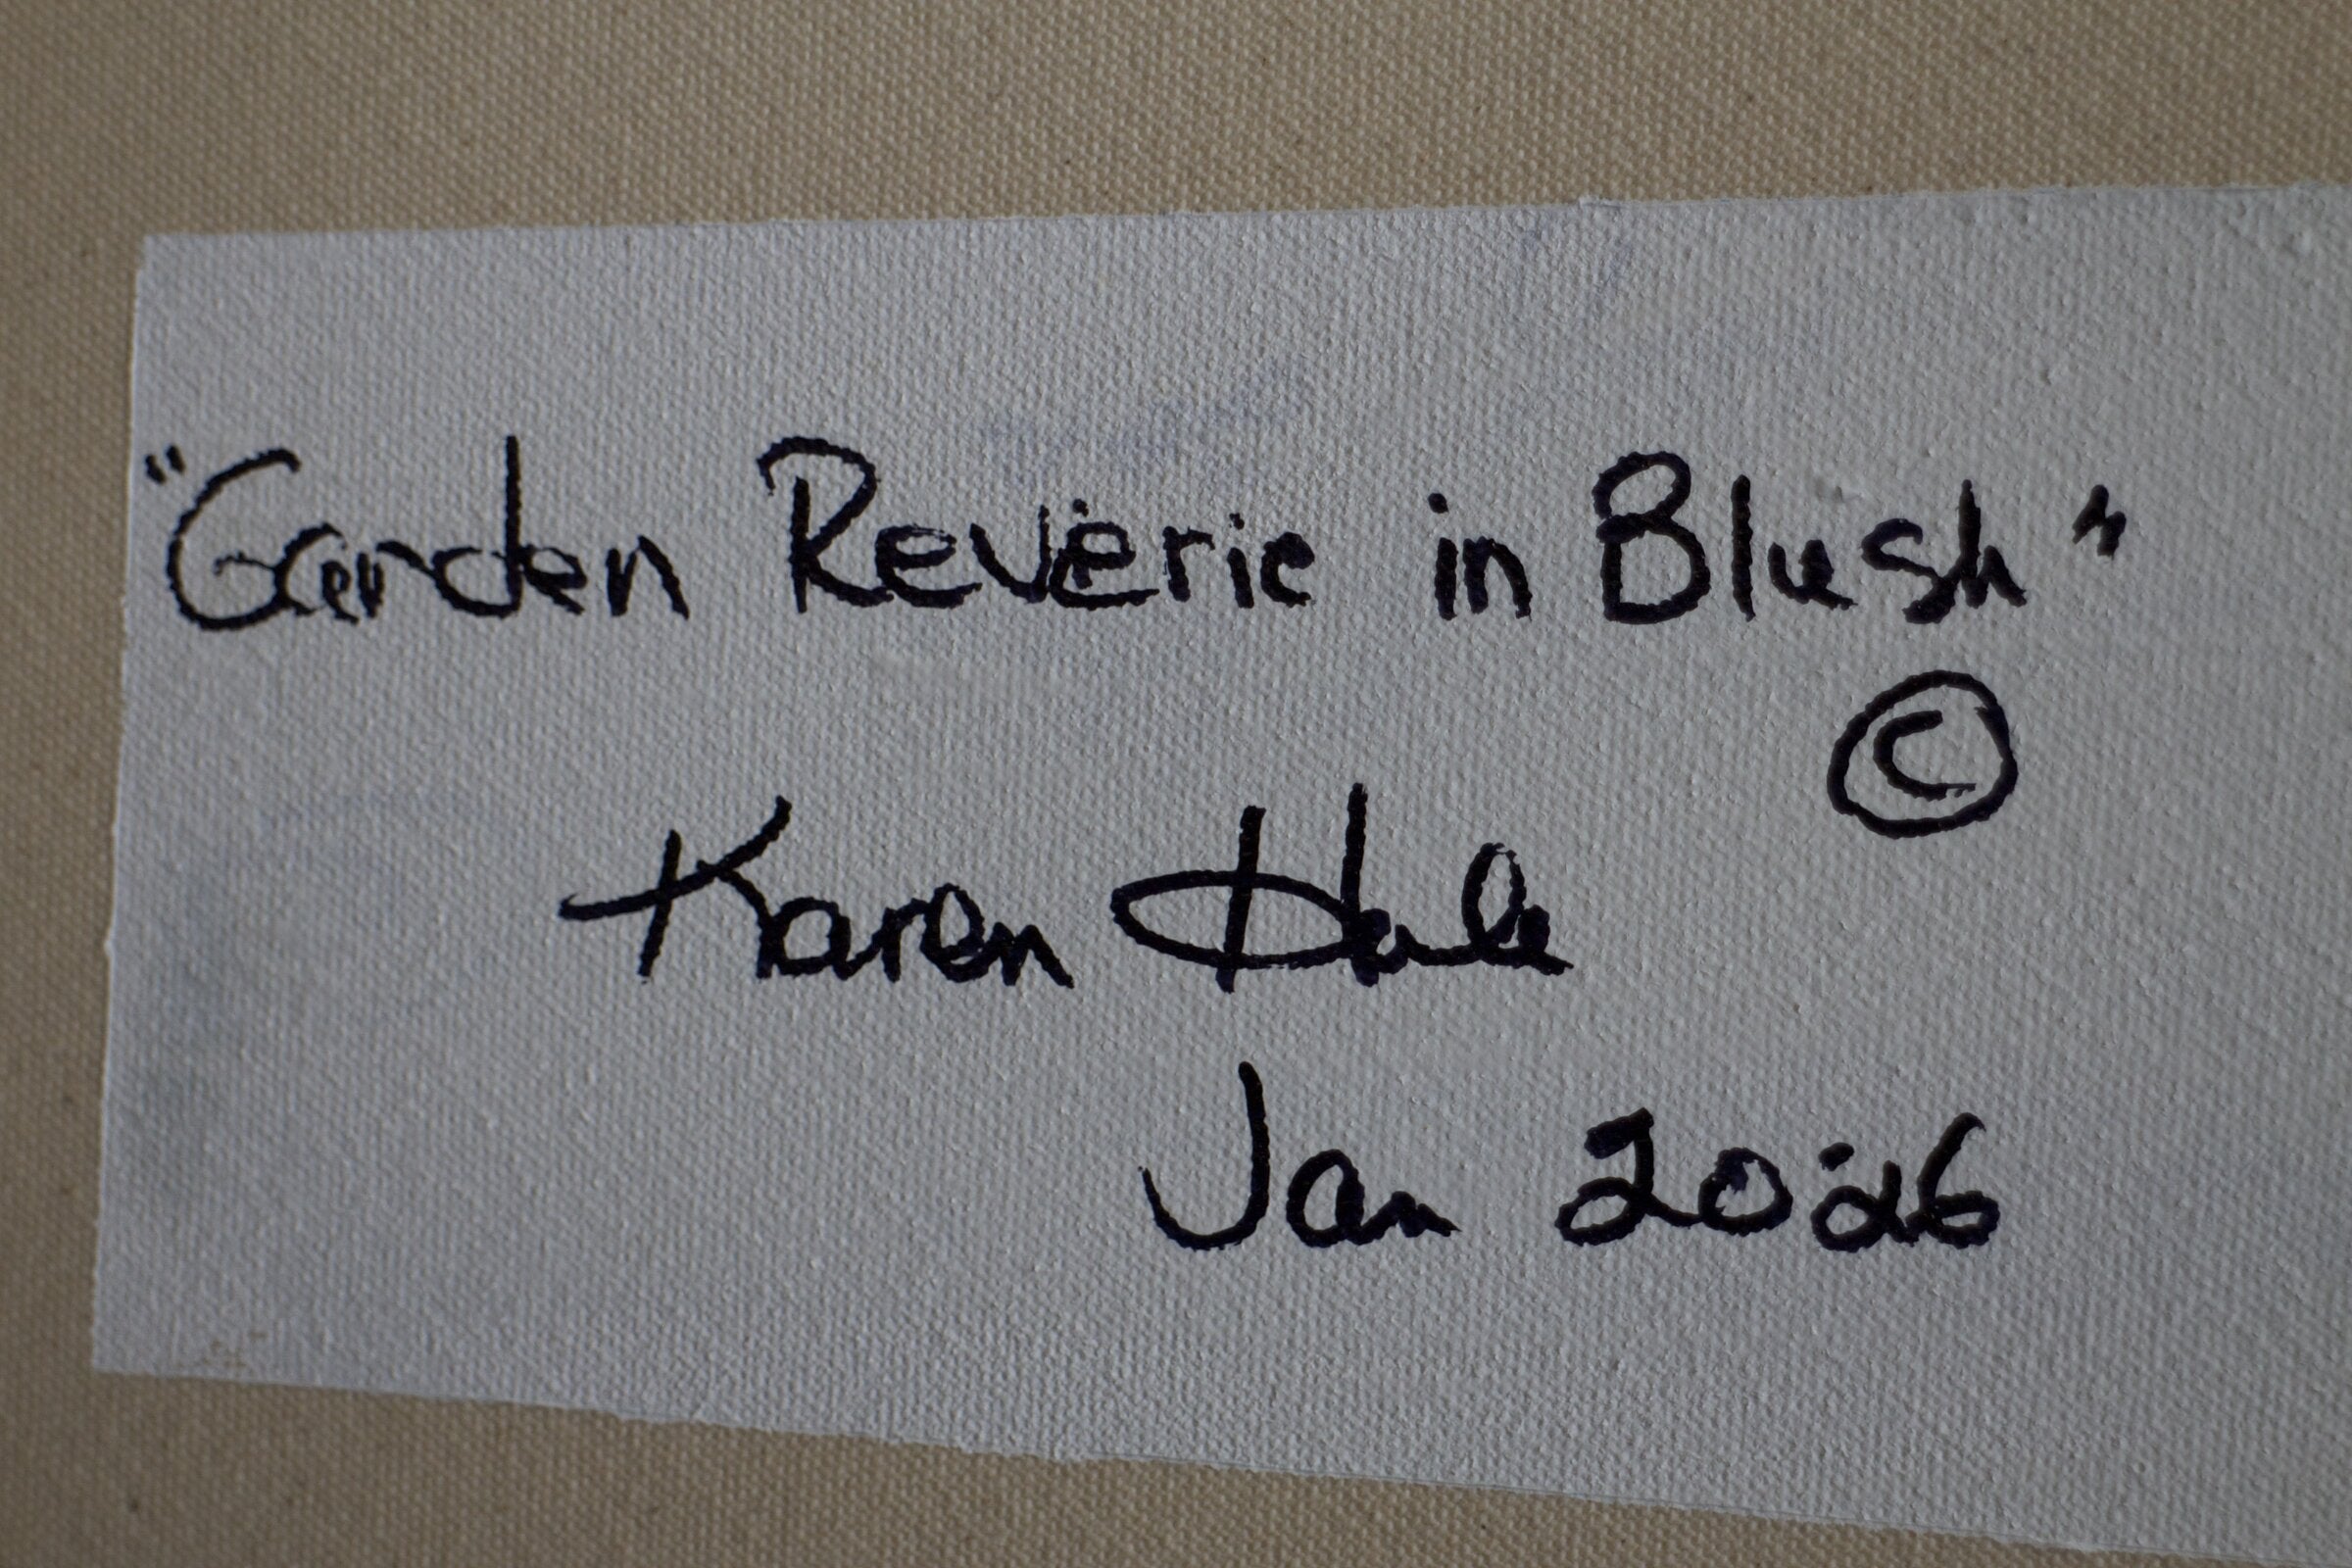 "Garden Reverie in Blush"
©
Karen Hale
Jan 2026